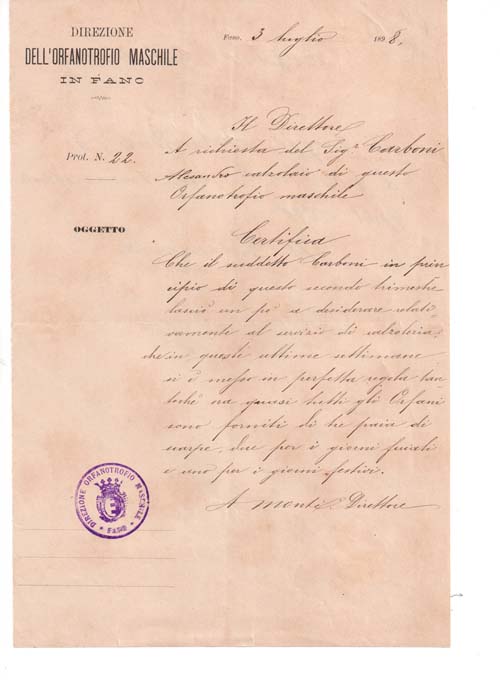 DIREZIONE
DELL'ORFANOTROFIO MASCHILE
IN FANO
Fano, 3 luglio 1898,
Prot. N. 22.
OGGETTO
Il Direttore
A richiesta del Sigr. Carboni
Alesandro calzolaio di questo
Orfanotrofio maschile
Certifica
Che il suddetto Carboni in prin
cipio di questo secondo trimestre
lasciò un pò a desiderare relati
vamente al servizio di calzoleria:
che in queste ultime settimane
si è messo in perfetta regola tan
toché quasi tutti gli Orfani
sono forniti di tre paia di
scarpe, due per i giorni feriali
e uno per i giorni festivi.
A Monti Direttore
DIREZIONE ORFANOTROFIO MASCHILE
* FANO *